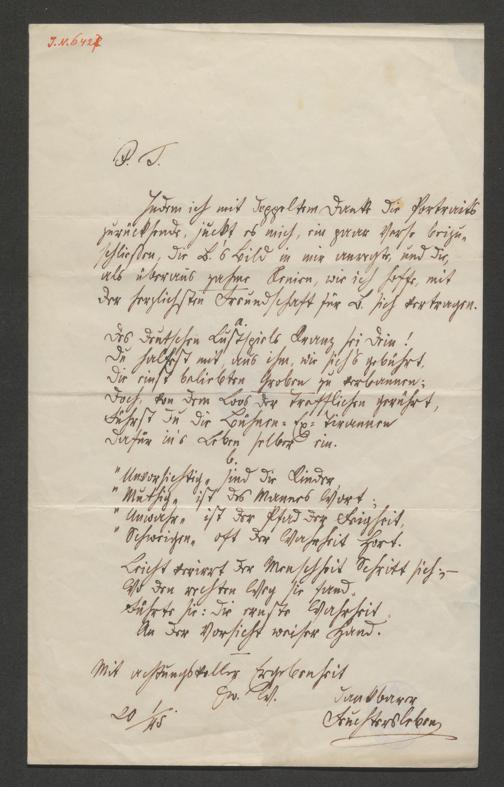 J.N. 6427
P. T.
Indem ich mit doppeltem Danke die Portraits
zurücksende, juckt es mich, ein paar Verse beizu-
schließen, die B.'s Bild in mir anregte, und die,
als überaus zahme Xenien, wie ich hoffe, mit
der herzlichsten Freundschaft für B. sich vertragen.
a.
Des deutschen Lustspiels Kranz sei dein!
Du halfst mit, aus ihm, wie sich's gebührt,
Die einst beliebten Groben zu verbannen;
Doch, von dem Loos der Trefflichen gerührt,
Führst du die Bühnen-Ex-Tirannen
Dafür in's Leben selber ein.
b.
"Unvorsichtig" sind die Kinder,
"Muthig" ist des Mannes Wort;
"Unwahr" ist der Pfad der Feigheit,
"Schweigen" oft der Wahrheit Hort.
Leicht verirrt der Menschheit Schritt sich; –
Wo den rechten Weg sie fand,
Führte sie: die ernste Wahrheit
An der Vorsicht weiser Hand.
Mit achtungsvoller Ergebenheit
Ew. W.
dankbarer
20 1/45
Feuchtersleben